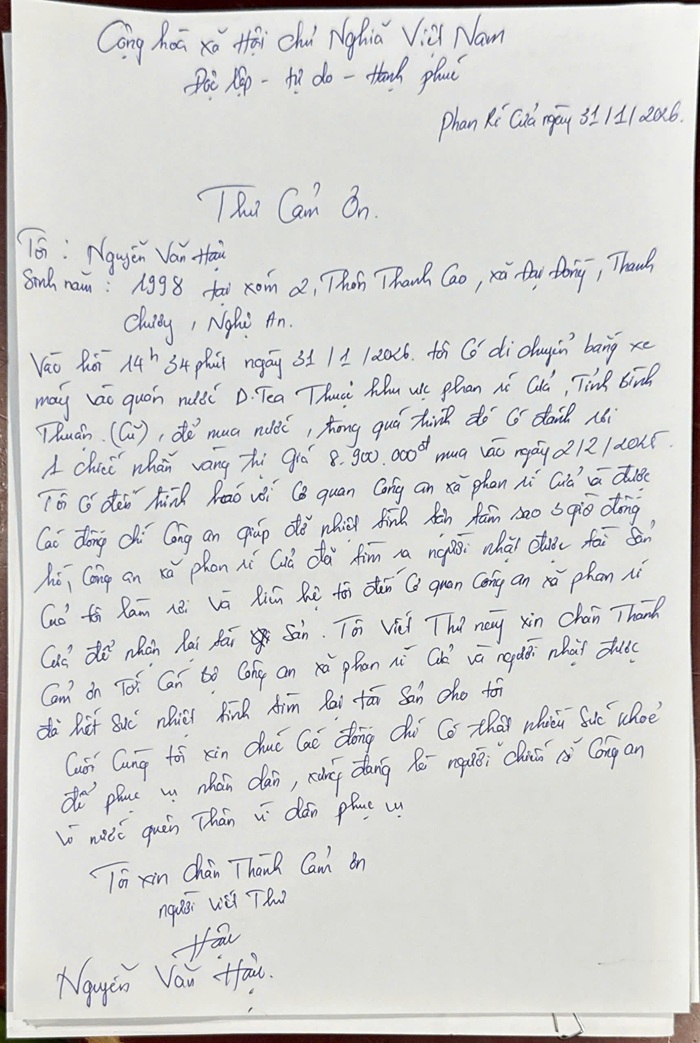 Cộng hoà xã Hội chủ Nghiã Việt Nam
Độc lập - tự do - Hạnh phúc
Phan Rí Cửa ngày 31/1/2026.
Thư Cảm Ơn.
Tôi : Nguyễn Văn Hậu
Sinh năm : 1998 tại xóm 2, Thôn Thanh Cao, xã Đại Đồng, Thanh
Chương, Nghệ An.
Vào hồi 14h 34 phút ngày 31/1/2026. tôi Có di chuyển bằng xe
máy vào quán nước D.Tea Thuộc khu vực phan rí Cửa, Tỉnh Bình
Thuận (Cũ), để mua nước, trong quá trình đó Có đánh rơi
1 chiếc nhẫn vàng trị giá 8.900.000đ mua vào ngày 2/2/2025.
Tôi Có đến trình báo với Cơ quan Công an xã phan rí Cửa và được
Các đồng chí Công an giúp đỡ nhiệt tình tận tâm sao 3 giờ đồng
hồ, Công an xã phan rí Cửa đã tìm ra người nhặt được tài Sản
Của tôi làm rơi và liên hệ tôi đến Cơ quan Công an xã phan rí
Cửa để nhận lại tài Sản. Tôi Viết Thư này xin chân Thành
Cảm ơn Tới Cán bộ Công an xã phan rí Cửa và người nhặt được
đã hết Sức nhiệt tình tìm lại tài Sản cho tôi
Cuối Cùng tôi xin chúc Các đồng chí Có thật nhiều Sức khoẻ
để phục vụ nhân dân, xứng đáng là người chiến sĩ Công an
vì nước quên Thân vì dân phục vụ
Tôi xin chân Thành Cảm ơn
người viết Thư
Hậu
Nguyễn Văn Hậu.